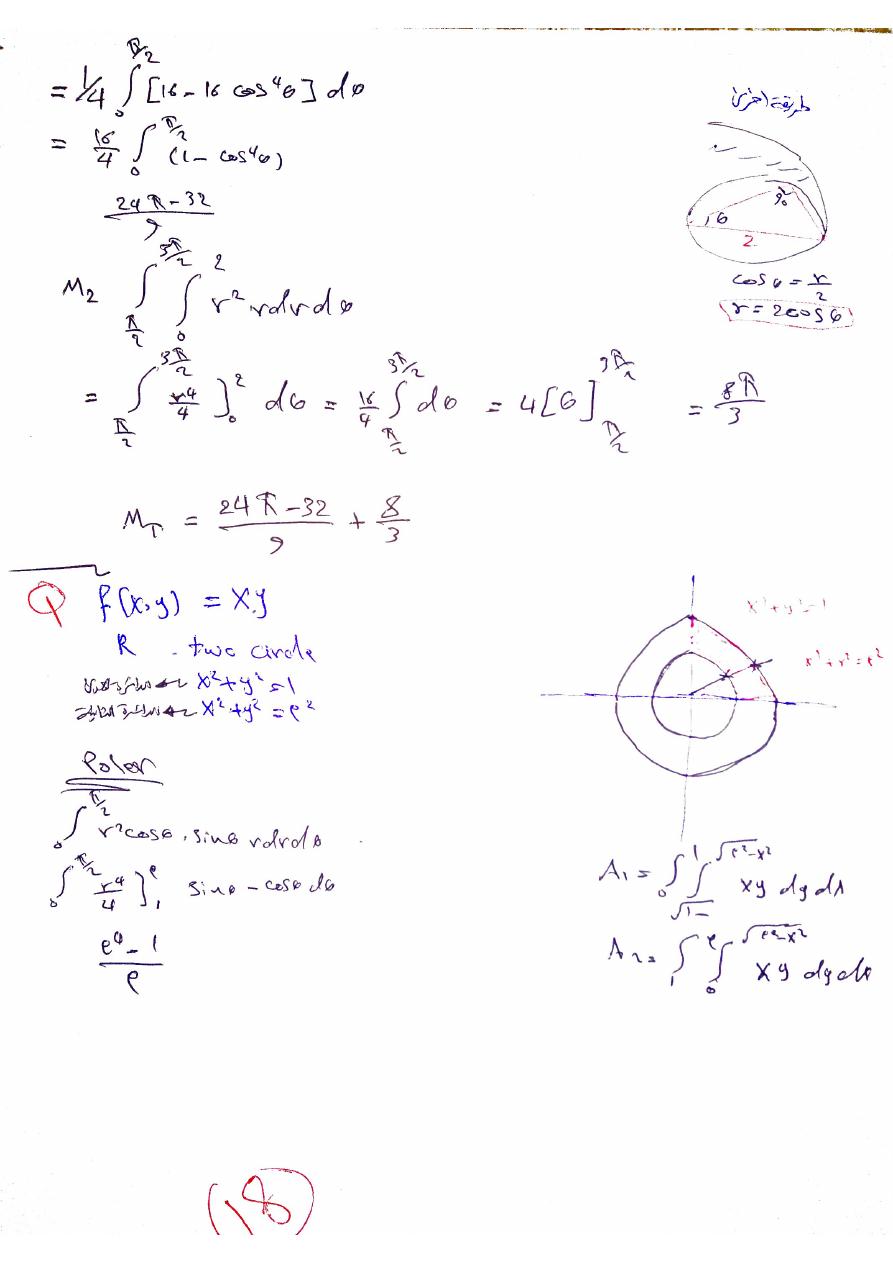 = 1/4 ∫₀^{π/2} [16 - 16 cos⁴θ] dθ
= 16/4 ∫₀^{π/2} (1 - cos⁴θ)
24π - 32 / 9
طريقة اخرى
θ 90°
2
cos θ = r/2
r = 2cos θ
M₂ ∫_{π/2}^{3π/2} ∫₀² r² r dr dθ
= ∫_{π/2}^{3π/2} r⁴/4 ]₀² dθ = 16/4 ∫_{π/2}^{3π/2} dθ = 4 [θ]_{π/2}^{3π/2} = 8π/3
M_T = 24π - 32 / 9 + 8/3
Q f(x,y) = x.y
R - two circle
x² + y² = 1
x² + y² = e²
x² + y² = 1
x² + y² = e²
Polar
∫₀^{π/2} r² cosθ . sinθ r dr dθ
∫₀^{π/2} r⁴/4 ]₁^e sinθ - cosθ dθ
e⁴ - 1 / e
A₁ = ∫₀¹ ∫_{√1-}^{√e²-x²} xy dy dx
A₂ = ∫₁^e ∫₀^{√e²-x²} xy dy dx
(18)